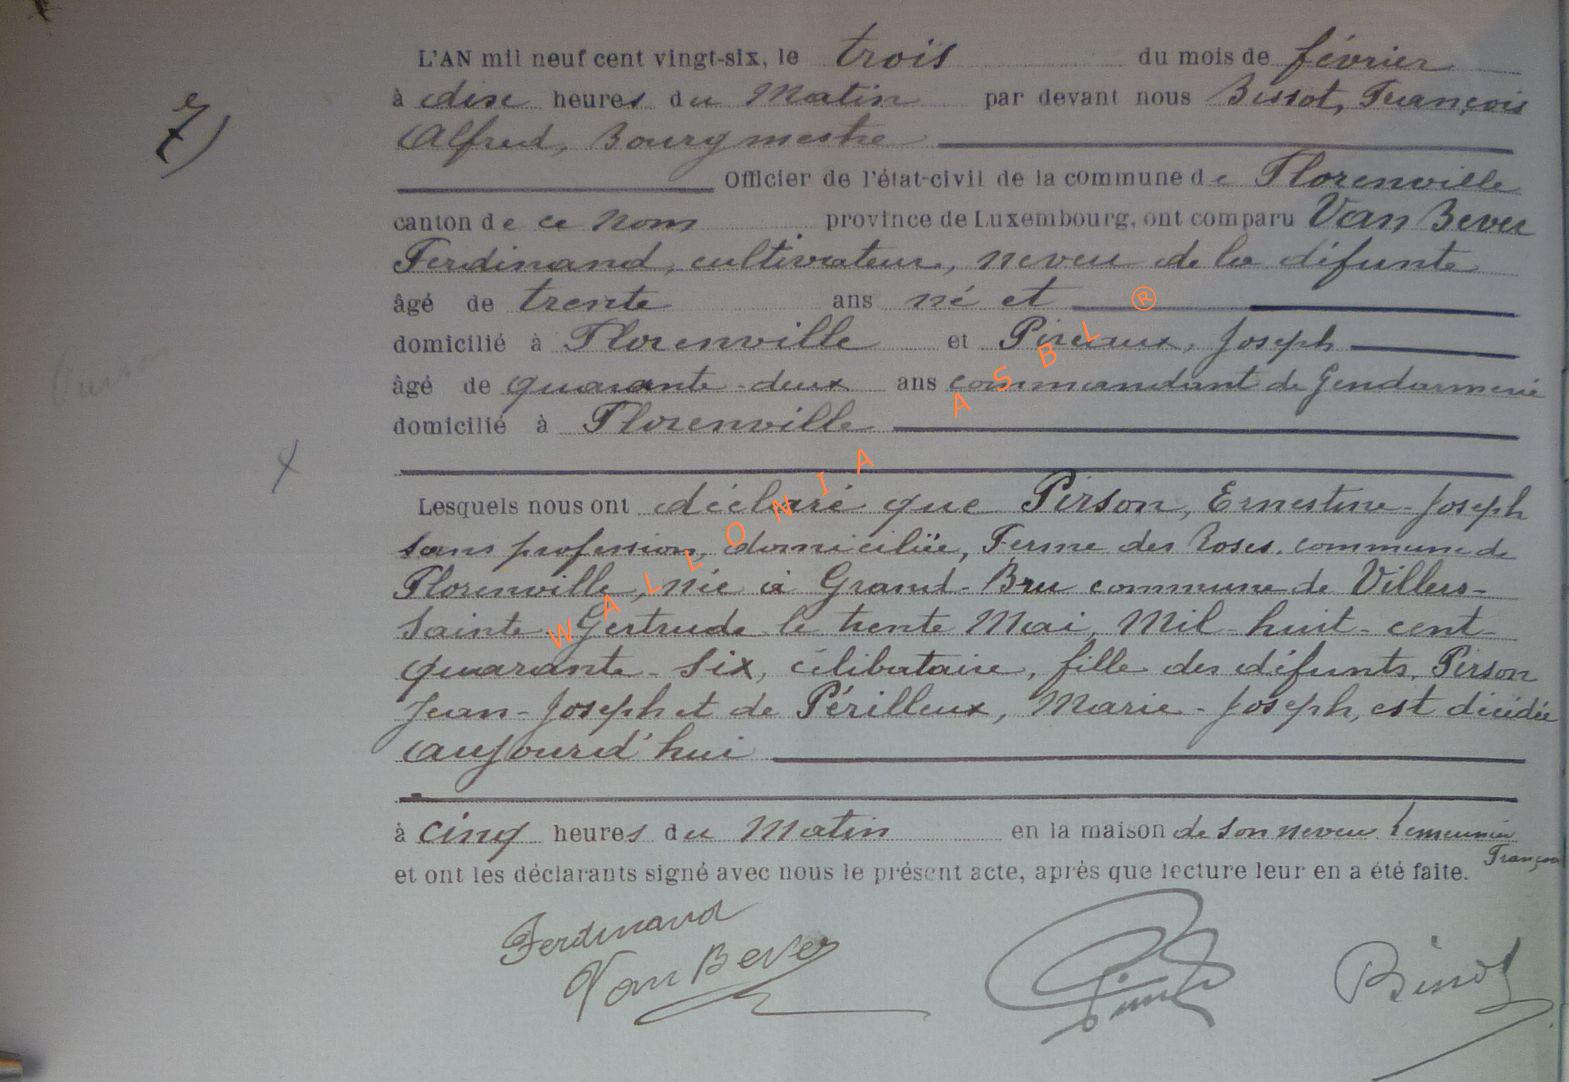 L'AN mil neuf cent vingt-six, le trois du mois de février
7) à dix heures du Matin par devant nous Bissot, François
Alfred, Bourgmestre
Officier de l'état-civil de la commune de Florenville
canton de ce nom province de Luxembourg, ont comparu Van Bever
Ferdinand, cultivateur, neveu de la défunte
âgé de trente ans né et
domicilié à Florenville et Pireaux, Joseph
âgé de quarante-deux ans commandant de Gendarmerie
domicilié à Florenville
Lesquels nous ont déclaré que Pirson, Ernestine-Joseph
sans profession, domiciliée, Ferme des Roses, commune de
Florenville, née à Grand-Bru commune de Villers-
Sainte Gertrude le trente Mai, Mil-huit-cent-
quarante-six, célibataire, fille des défunts, Pirson
Jean-Joseph et de Périlleux, Marie-Joseph, est décédée
aujourd'hui
à cinq heures du Matin en la maison de son neveu Lemeunier
François
et ont les déclarants signé avec nous le présent acte, après que lecture leur en a été faite.
Ferdinand
Van Bever
Bissot
WALLONIA ASBL ®